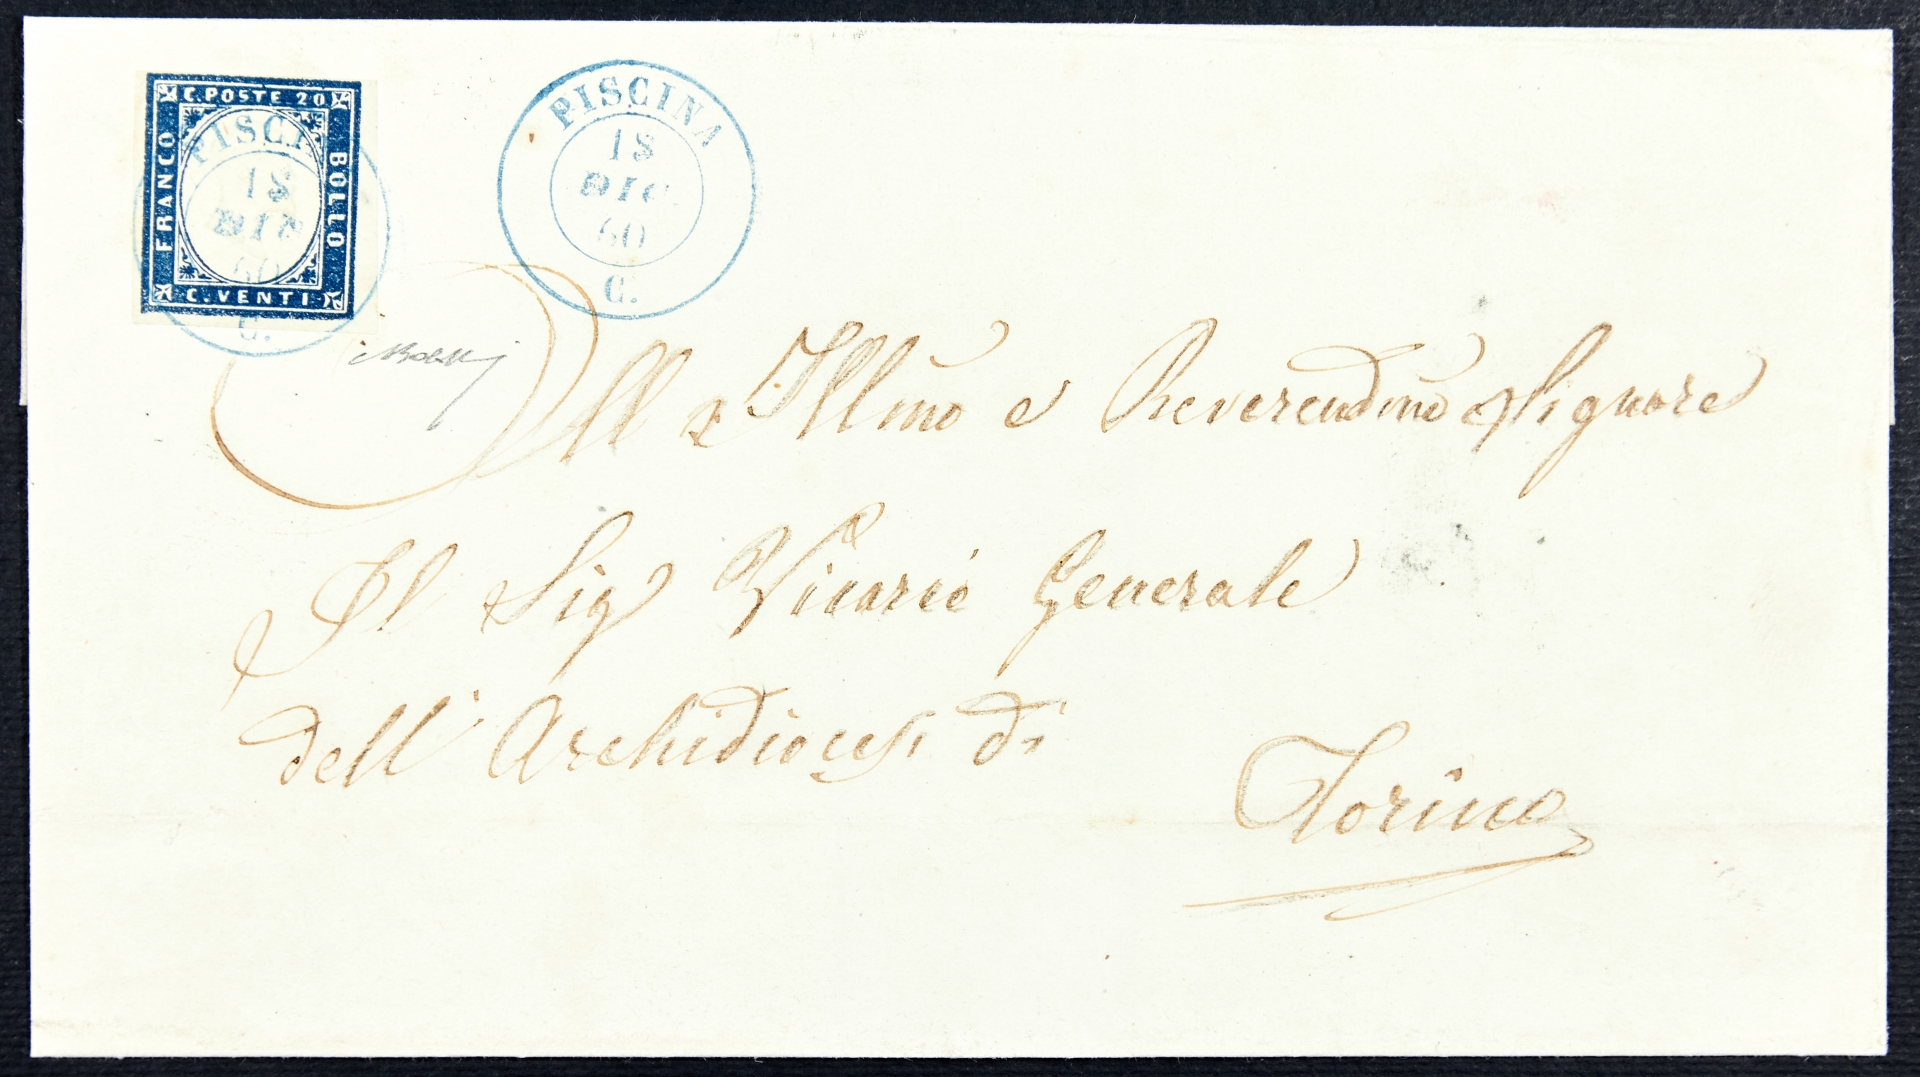 C. POSTE 20
FRANCO
BOLLO
C. VENTI
PISCI
18
DIC
60
C.
PISCINA
18
DIC
60
C.
All Illmo e Reverendmo Signore
Il Sig Vicario Generale
dell' Archidiocesi di
Torino